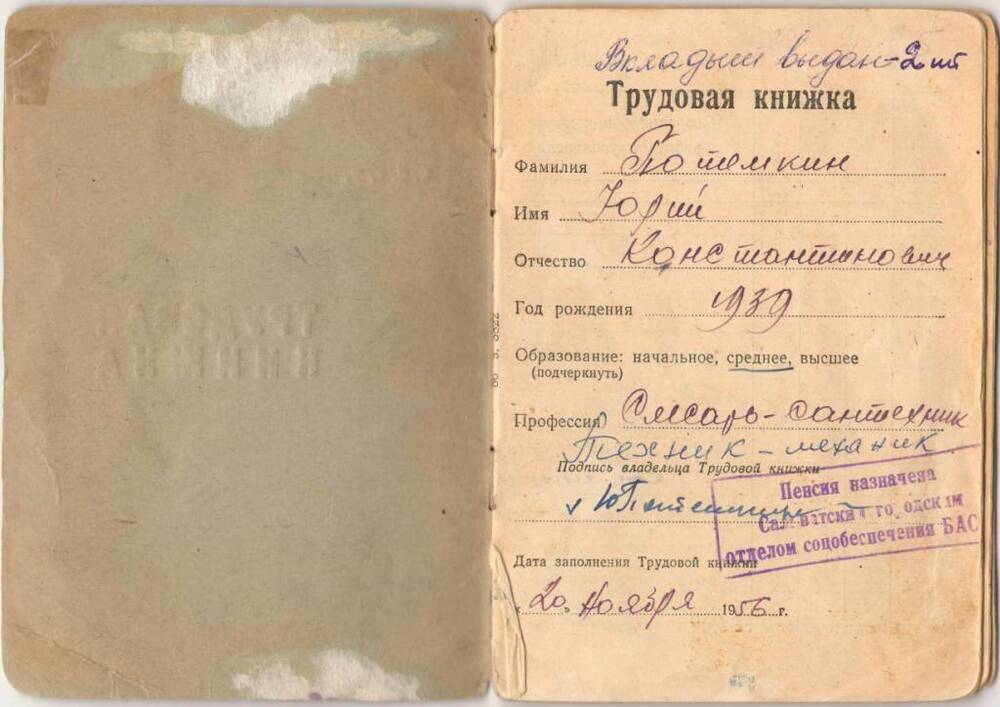 Вкладыш выдан-2шт
Трудовая книжка
Фамилия Потемкин
Имя Юрий
Отчество Константинович
Год рождения 1939
Образование: начальное, среднее, высшее
(подчеркнуть)
Профессия Слесарь-сантехник
Техник-механик
Подпись владельца Трудовой книжки
Пенсия назначена
Салаватским городским
отделом соцобеспечения БАС
Дата заполнения Трудовой книжки
"20" Ноября 1956 г.